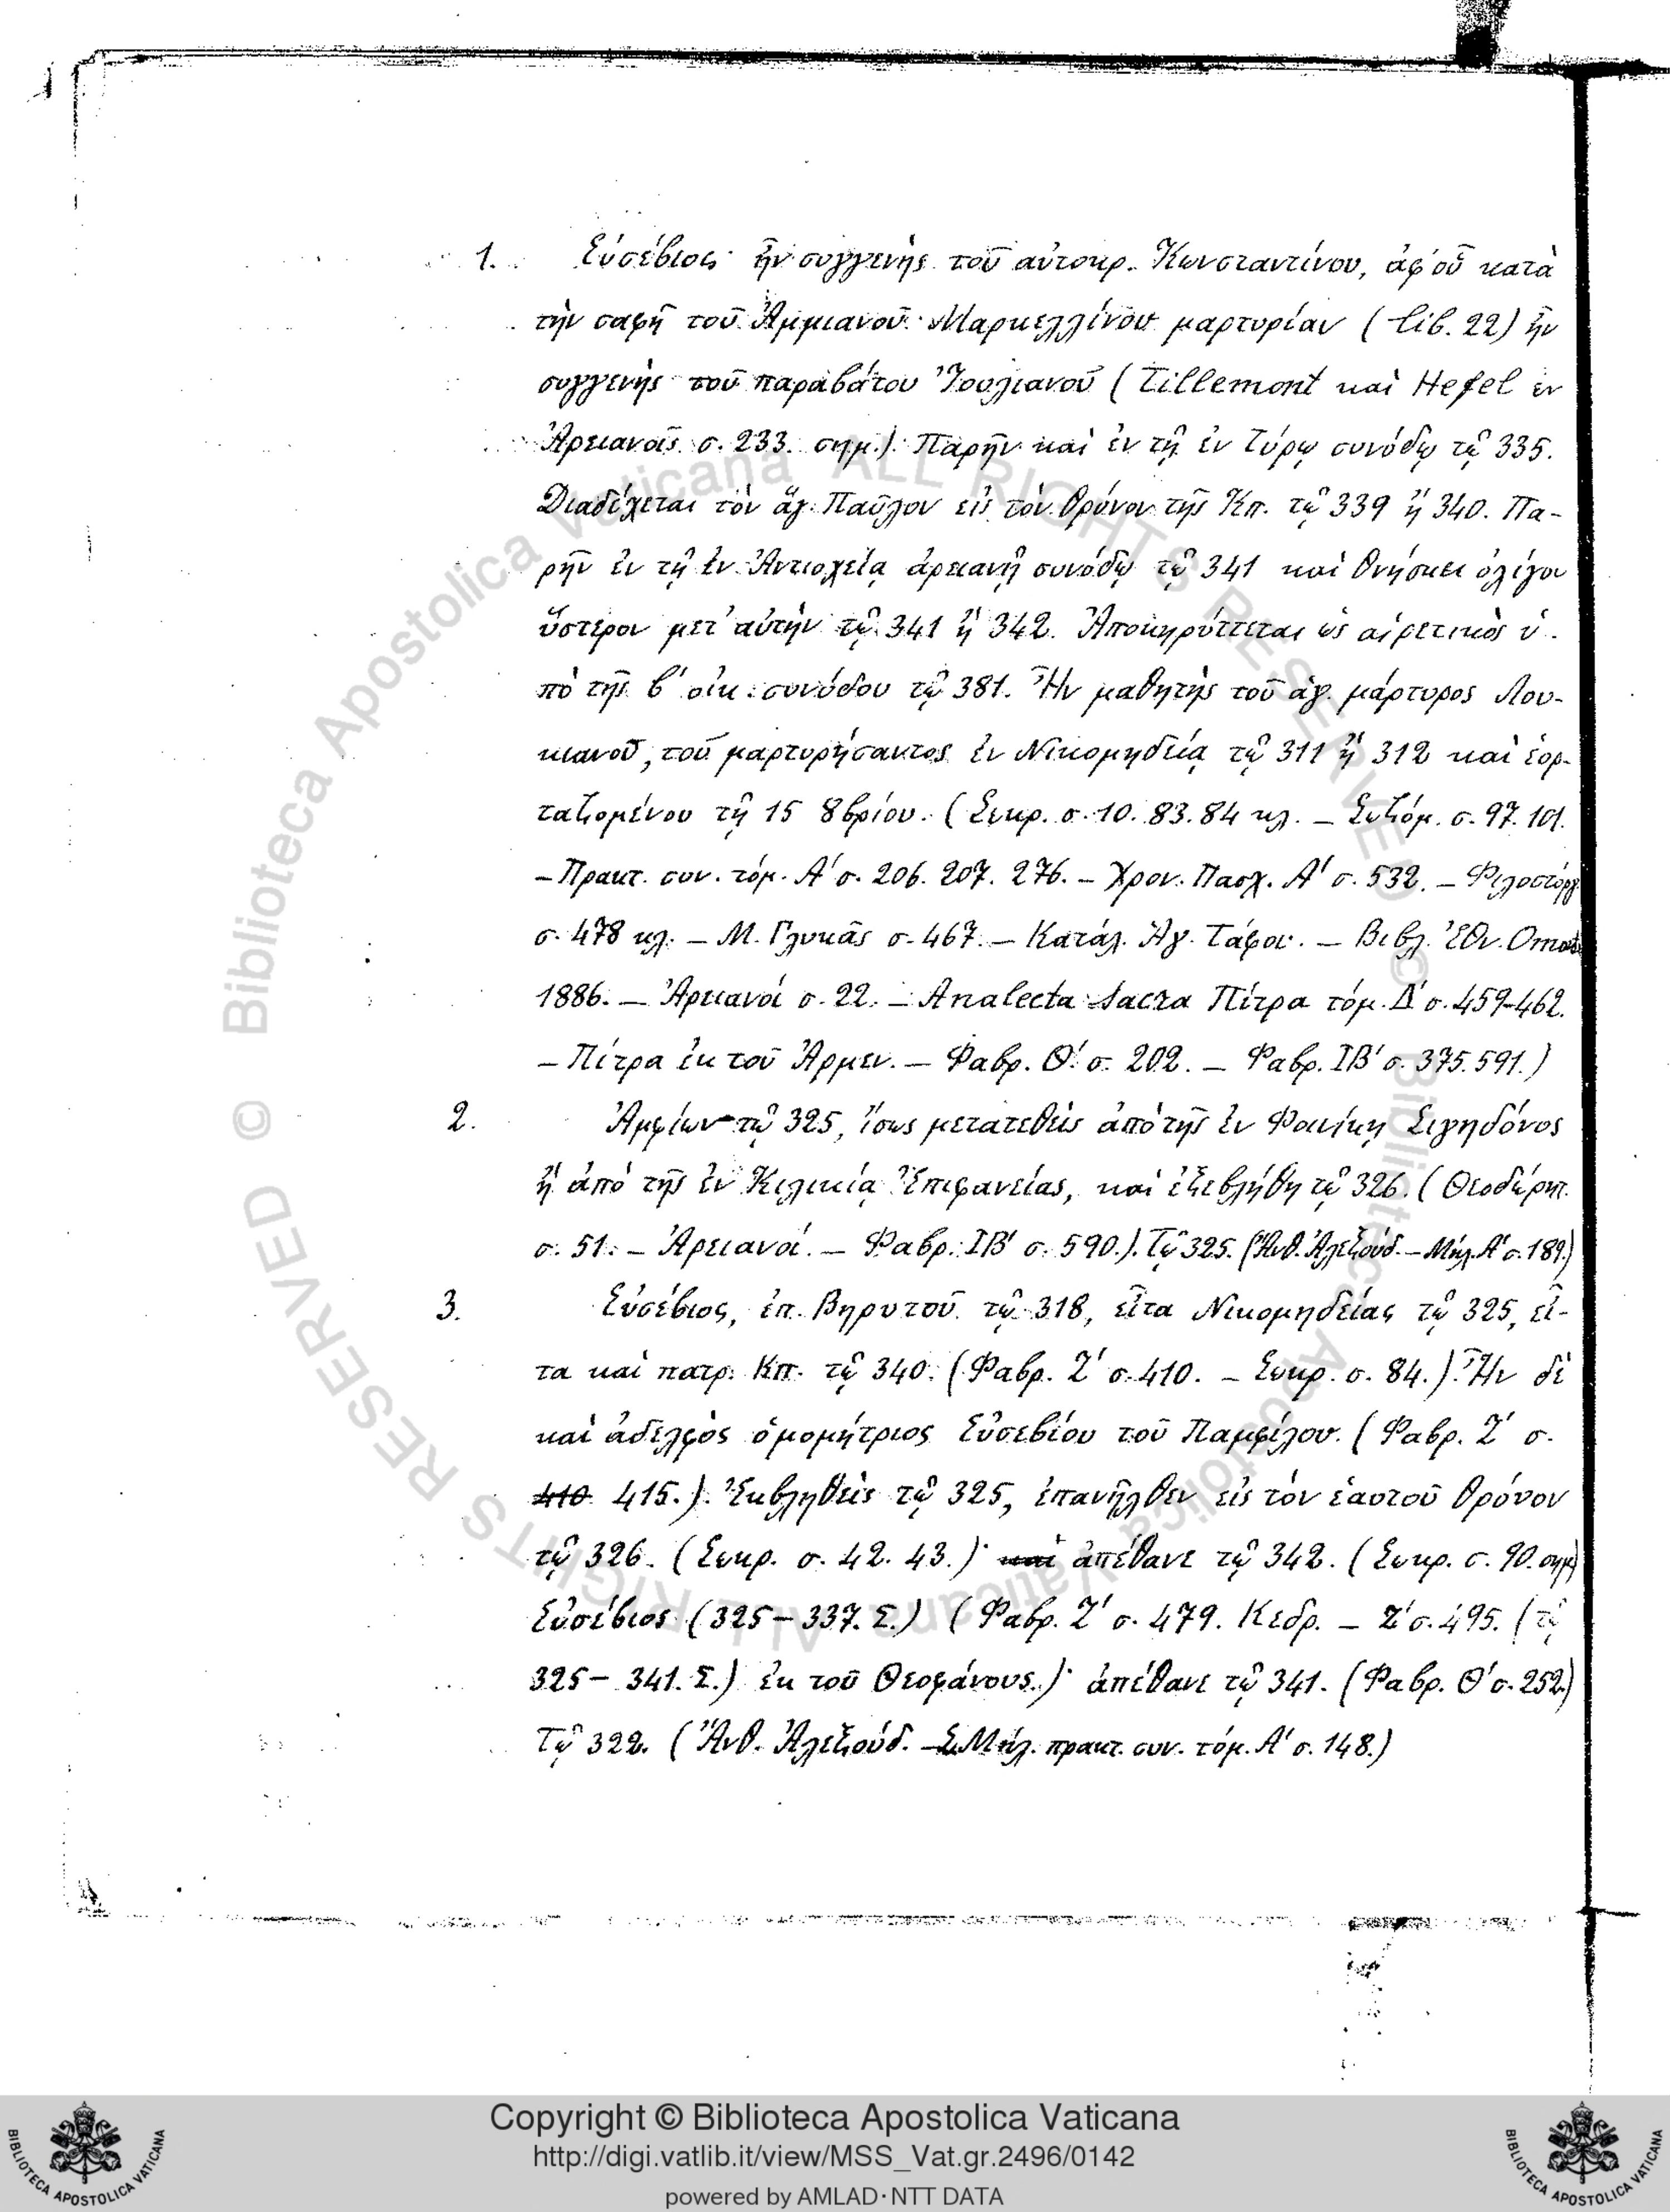 1. Εὐσέβιος ἦν συγγενὴς τοῦ αὐτοκρ. Κωνσταντίνου, ἀφ' οὗ κατὰ
τὴν σαφῆ τοῦ Ἀμμιανοῦ Μαρκελλίνου μαρτυρίαν (lib. 22) ἦν
συγγενὴς τοῦ παραβάτου Ἰουλιανοῦ (Tillemont καὶ Hefel ἐν
Ἀρειανοῖς σ. 233. σημ.). Παρῆν καὶ ἐν τῇ ἐν Τύρῳ συνόδῳ τῷ 335.
Διαδέχεται τὸν ἅγ. Παῦλον εἰς τὸν θρόνον τῆς Κπ. τῷ 339 ἢ 340. Πα-
ρῆν ἐν τῇ ἐν Ἀντιοχείᾳ ἀρειανῇ συνόδῳ τῷ 341 καὶ θνήσκει ὀλίγον
ὕστερον μετ' αὐτὴν τῷ 341 ἢ 342. Ἀποκηρύττεται ὡς αἱρετικὸς ὑ-
πὸ τῆς β' οἰκ. συνόδου τῷ 381. Ἦν μαθητὴς τοῦ ἁγ. μάρτυρος Λου-
κιανοῦ, τοῦ μαρτυρήσαντος ἐν Νικομηδείᾳ τῷ 311 ἢ 312 καὶ ἑορ-
ταζομένου τῇ 15 8βρίου. (Σωκρ. σ. 10. 83. 84 κλ. — Σωζόμ. σ. 97. 101.
— Πρακτ. συν. τόμ. Α' σ. 206. 207. 276. — Χρον. Πασχ. Α' σ. 532. — Φιλοστόργ.
σ. 478 κλ. — Μ. Γλυκᾶς σ. 467. — Κατάλ. Ἁγ. Τάφου. — Βιβλ. Ἐθν. Omont
1886. — Ἀρειανοί σ. 22. — Analecta Sacra Πίτρα τόμ. Δ' σ. 459-462.
— Πίτρα ἐκ τοῦ Ἀρμεν. — Φαβρ. Θ' σ. 202. — Φαβρ. ΙΒ' σ. 375. 591.)
2. Ἀμφίων τῷ 325, ἴσως μετατεθεὶς ἀπὸ τῆς ἐν Φοινίκῃ Σιγηδόνος
ἢ ἀπὸ τῆς ἐν Κιλικίᾳ Ἐπιφανείας, καὶ ἐξεβλήθη τῷ 326. (Θεοδώρητ.
σ. 51. — Ἀρειανοί. — Φαβρ. ΙΒ' σ. 590.). Τῷ 325. (Ἄνθ. Ἀλεξούδ. — Μήλ. Α' σ. 189.)
3. Εὐσέβιος, ἐπ. Βηρυτοῦ τῷ 318, εἶτα Νικομηδείας τῷ 325, εἶ-
τα καὶ πατρ. Κπ. τῷ 340. (Φαβρ. Ζ' σ. 410. — Σωκρ. σ. 84.). Ἦν δὲ
καὶ ἀδελφὸς ὁμομήτριος Εὐσεβίου τοῦ Παμφίλου. (Φαβρ. Ζ' σ.
410 415.). Ἐκβληθεὶς τῷ 325, ἐπανῆλθεν εἰς τὸν ἑαυτοῦ θρόνον
τῷ 326. (Σωκρ. σ. 42. 43.)· καὶ ἀπέθανε τῷ 342. (Σωκρ. σ. 90. σημ.)
Εὐσέβιος (325 – 337. Σ.) (Φαβρ. Ζ' σ. 479. Κεδρ. — Ζ' σ. 495. (τῷ
325 – 341. Σ.) ἐκ τοῦ Θεοφάνους.)· ἀπέθανε τῷ 341. (Φαβρ. Θ' σ. 252.)
Τῷ 322. (Ἄνθ. Ἀλεξούδ. — Μήλ. πρακτ. συν. τόμ. Α' σ. 148.)
© Biblioteca Apostolica Vaticana ALL RIGHTS RESERVED © Biblioteca Apostolica Vaticana ALL RIGHTS RESERVED
Copyright © Biblioteca Apostolica Vaticana
http://digi.vatlib.it/view/MSS_Vat.gr.2496/0142
powered by AMLAD·NTT DATA
BIBLIOTECA APOSTOLICA VATICANA
BIBLIOTECA APOSTOLICA VATICANA